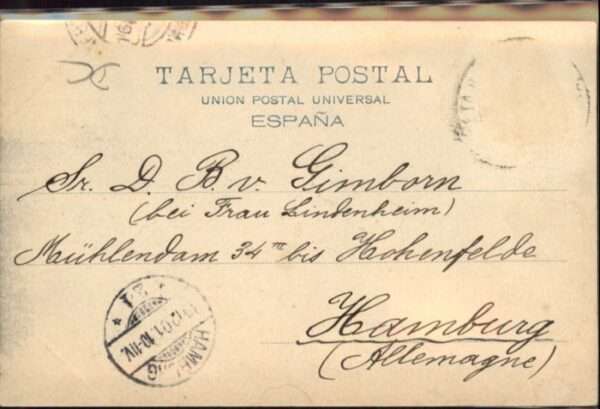 TARJETA POSTAL
UNION POSTAL UNIVERSAL
ESPAÑA
Sr. D. B. v. Gimborn
(bei Frau Lindenheim)
Mühlendam 34 III bis Hohenfelde
Hamburg
(Allemagne)
HAMBURG